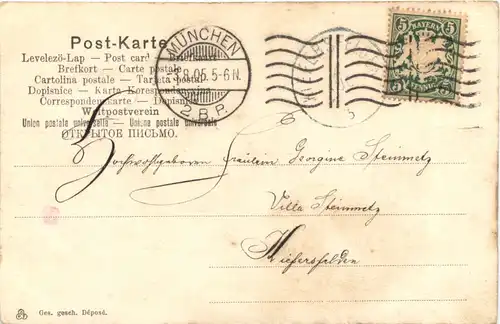 Post-Karte
Levelező-Lap — Post card — Briefkaart
Brefkort — Carte postale
Cartolina postale — Tarjeta postal
Dopisnice — Karta Korespondencyjna
Correspondenzkarte — Dopisnica
Weltpostverein
Union postale universelle — Unione postale universale
ОТКРЫТОЕ ПИСЬМО.
MÜNCHEN
5-6 N.
2 B.P.
BAYERN
5 5
PFENNIG
Hochwohlgeboren Fräulein Georgine Steinmetz
Villa Steinmetz
Kiefersfelden
Ges. gesch. Déposé.